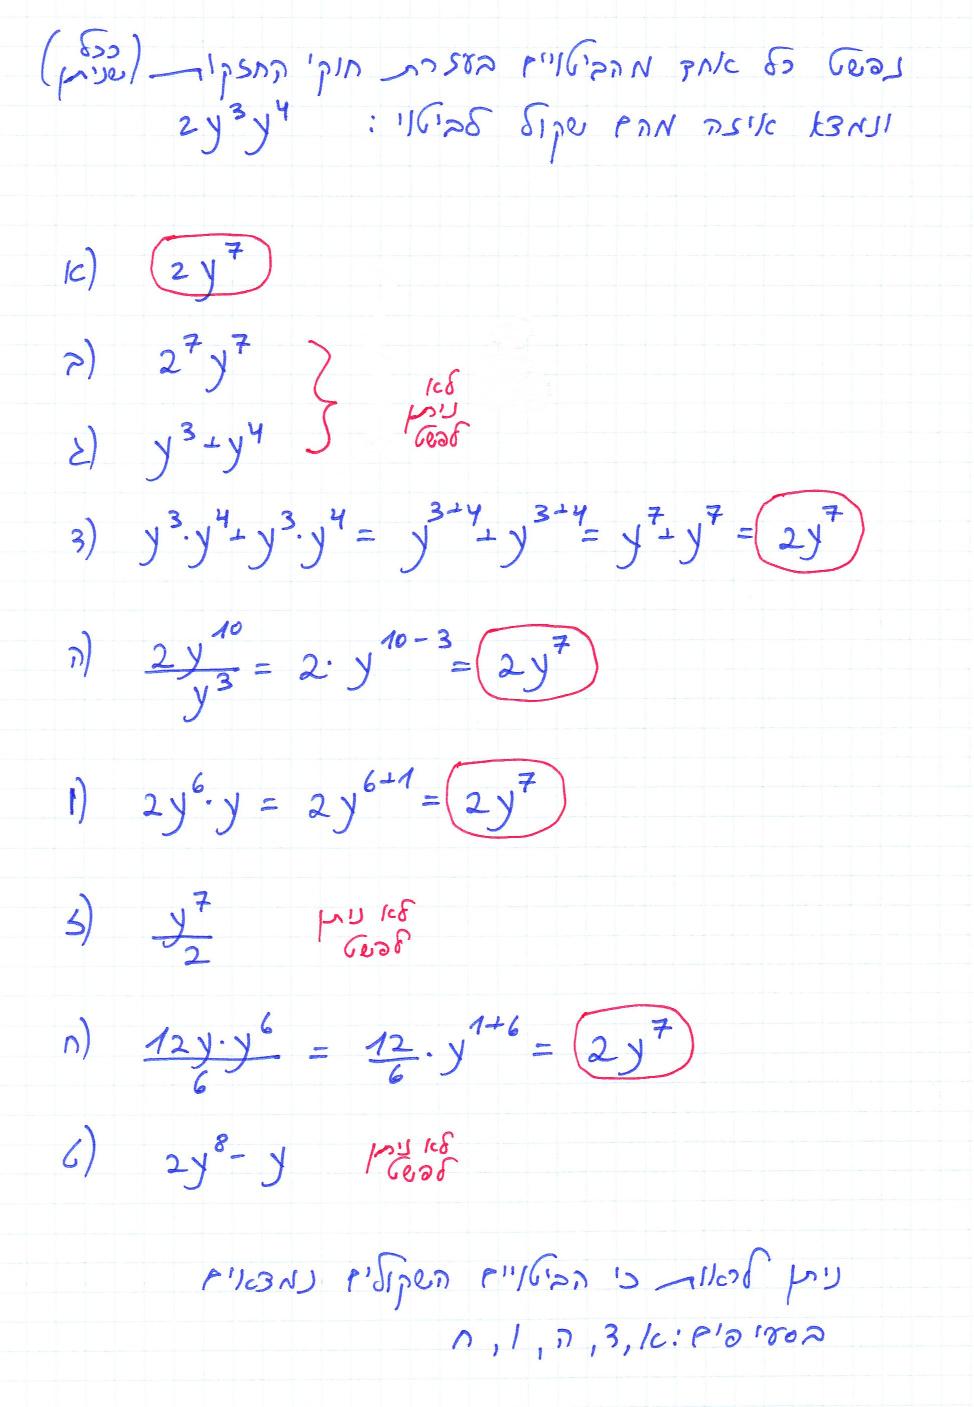 נפשט כל אחד מהביטויים בעזרת חוקי החזקות (ככל שניתן)
ונמצא איזה מהם שקול לביטוי: 2y³y⁴
א) 2y⁷
ב) 2⁷y⁷
ג) y³+y⁴
לא
ניתן
לפשט
ד) y³·y⁴+y³·y⁴ = y³⁺⁴+y³⁺⁴ = y⁷+y⁷ = 2y⁷
ה) 2y¹⁰/y³ = 2·y¹⁰⁻³ = 2y⁷
ו) 2y⁶·y = 2y⁶⁺¹ = 2y⁷
ז) y⁷/2
לא ניתן
לפשט
ח) 12y·y⁶/6 = 12/6·y¹⁺⁶ = 2y⁷
ט) 2y⁸-y
לא ניתן
לפשט
ניתן לראות כי הביטויים השקולים נמצאים
בסעיפים: א, ד, ה, ו, ח